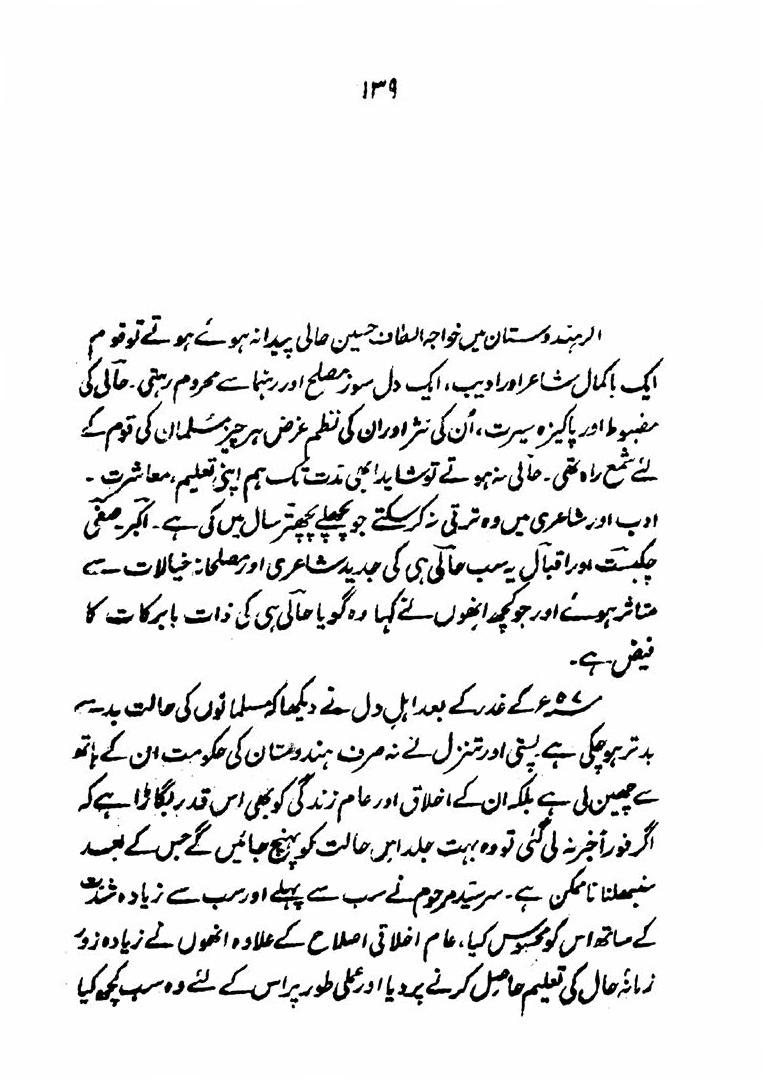 ۱۳۹
اگر ہندوستان میں خواجہ الطاف حسین حالی پیدا نہ ہوئے ہوتے تو قوم
ایک باکمال شاعر اور ادیب، ایک دل سوز مصلح اور رہنما سے محروم رہتی۔ حالی کی
مضبوط اور پاکیزہ سیرت، اُن کی نثر اور ان کی نظم غرض ہر چیز مسلمان کی قوم کے
لئے شمع راہ تھی۔ حالی نہ ہوتے تو شاید ابھی مدت تک ہم اپنی تعلیم، معاشرت۔
ادب اور شاعری میں وہ ترقی نہ کر سکتے جو پچھلے پچھتر سال میں کی ہے۔ اکبر۔ صفی
چکبست اور اقبال یہ سب حالی ہی کی جدید شاعری اور مصلحانہ خیالات سے
متاثر ہوئے اور جو کچھ انھوں نے کہا وہ گویا حالی ہی کی ذات بابرکات کا
فیض ہے۔
۵۷ء کے غدر کے بعد اہلِ دل نے دیکھا کہ مسلمانوں کی حالت بد سے
بدتر ہو چکی ہے پستی اور تنزل نے نہ صرف ہندوستان کی حکومت ان کے ہاتھ
سے چھین لی ہے بلکہ ان کے اخلاق اور عام زندگی کو بھی اس قدر بگاڑا ہے کہ
اگر فوراً خبر نہ لی گئی تو وہ بہت جلد اس حالت کو پہنچ جائیں گے جس کے بعد
سنبھلنا ناممکن ہے۔ سرسید مرحوم نے سب سے پہلے اور سب سے زیادہ شدت
کے ساتھ اس کو محسوس کیا، عام اخلاقی اصلاح کے علاوہ انھوں نے زیادہ زور
زمانۂ حال کی تعلیم حاصل کرنے پر دیا اور عملی طور پر اس کے لئے وہ سب کچھ کیا